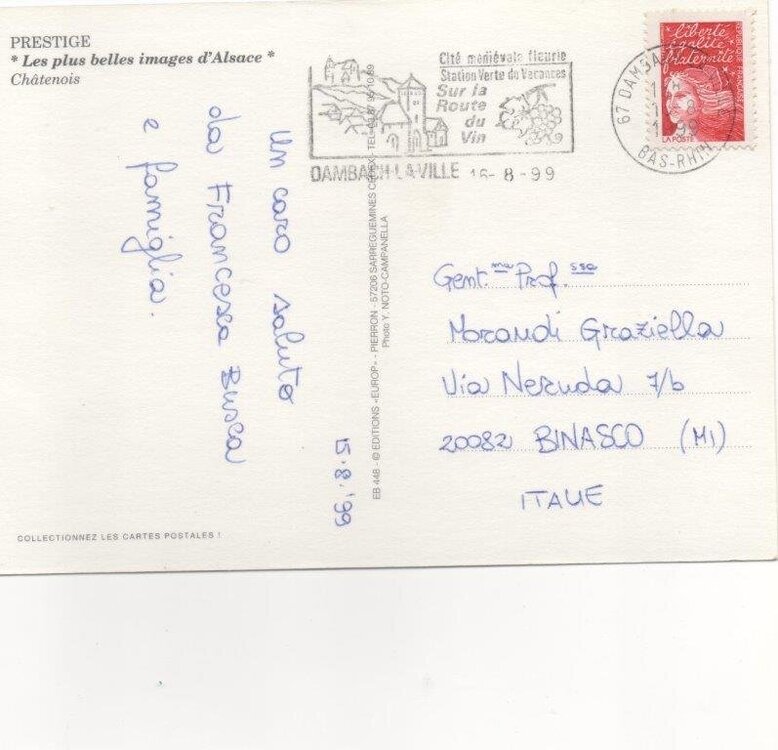 PRESTIGE
* Les plus belles images d'Alsace *
Châtenois
Un caro saluto
da Francesca Busca
e famiglia.
15.8.'99
COLLECTIONNEZ LES CARTES POSTALES !
EB 448 - © EDITIONS «EUROP» - PIERRON - 57206 SARREGUEMINES CEDEX - TEL.
Photo Y. NOTO-CAMPANELLA
Cité médiévale fleurie
Station Verte de Vacances
Sur la
Route
du
Vin
DAMBACH-LA-VILLE 16-8-99
67 DAMBACH
BAS-RHIN
liberté
égalité
fraternité
LA POSTE
Gent.ma Prof.ssa
Morandi Graziella
Via Neruda 7/b
20082 BINASCO (MI)
ITALIE